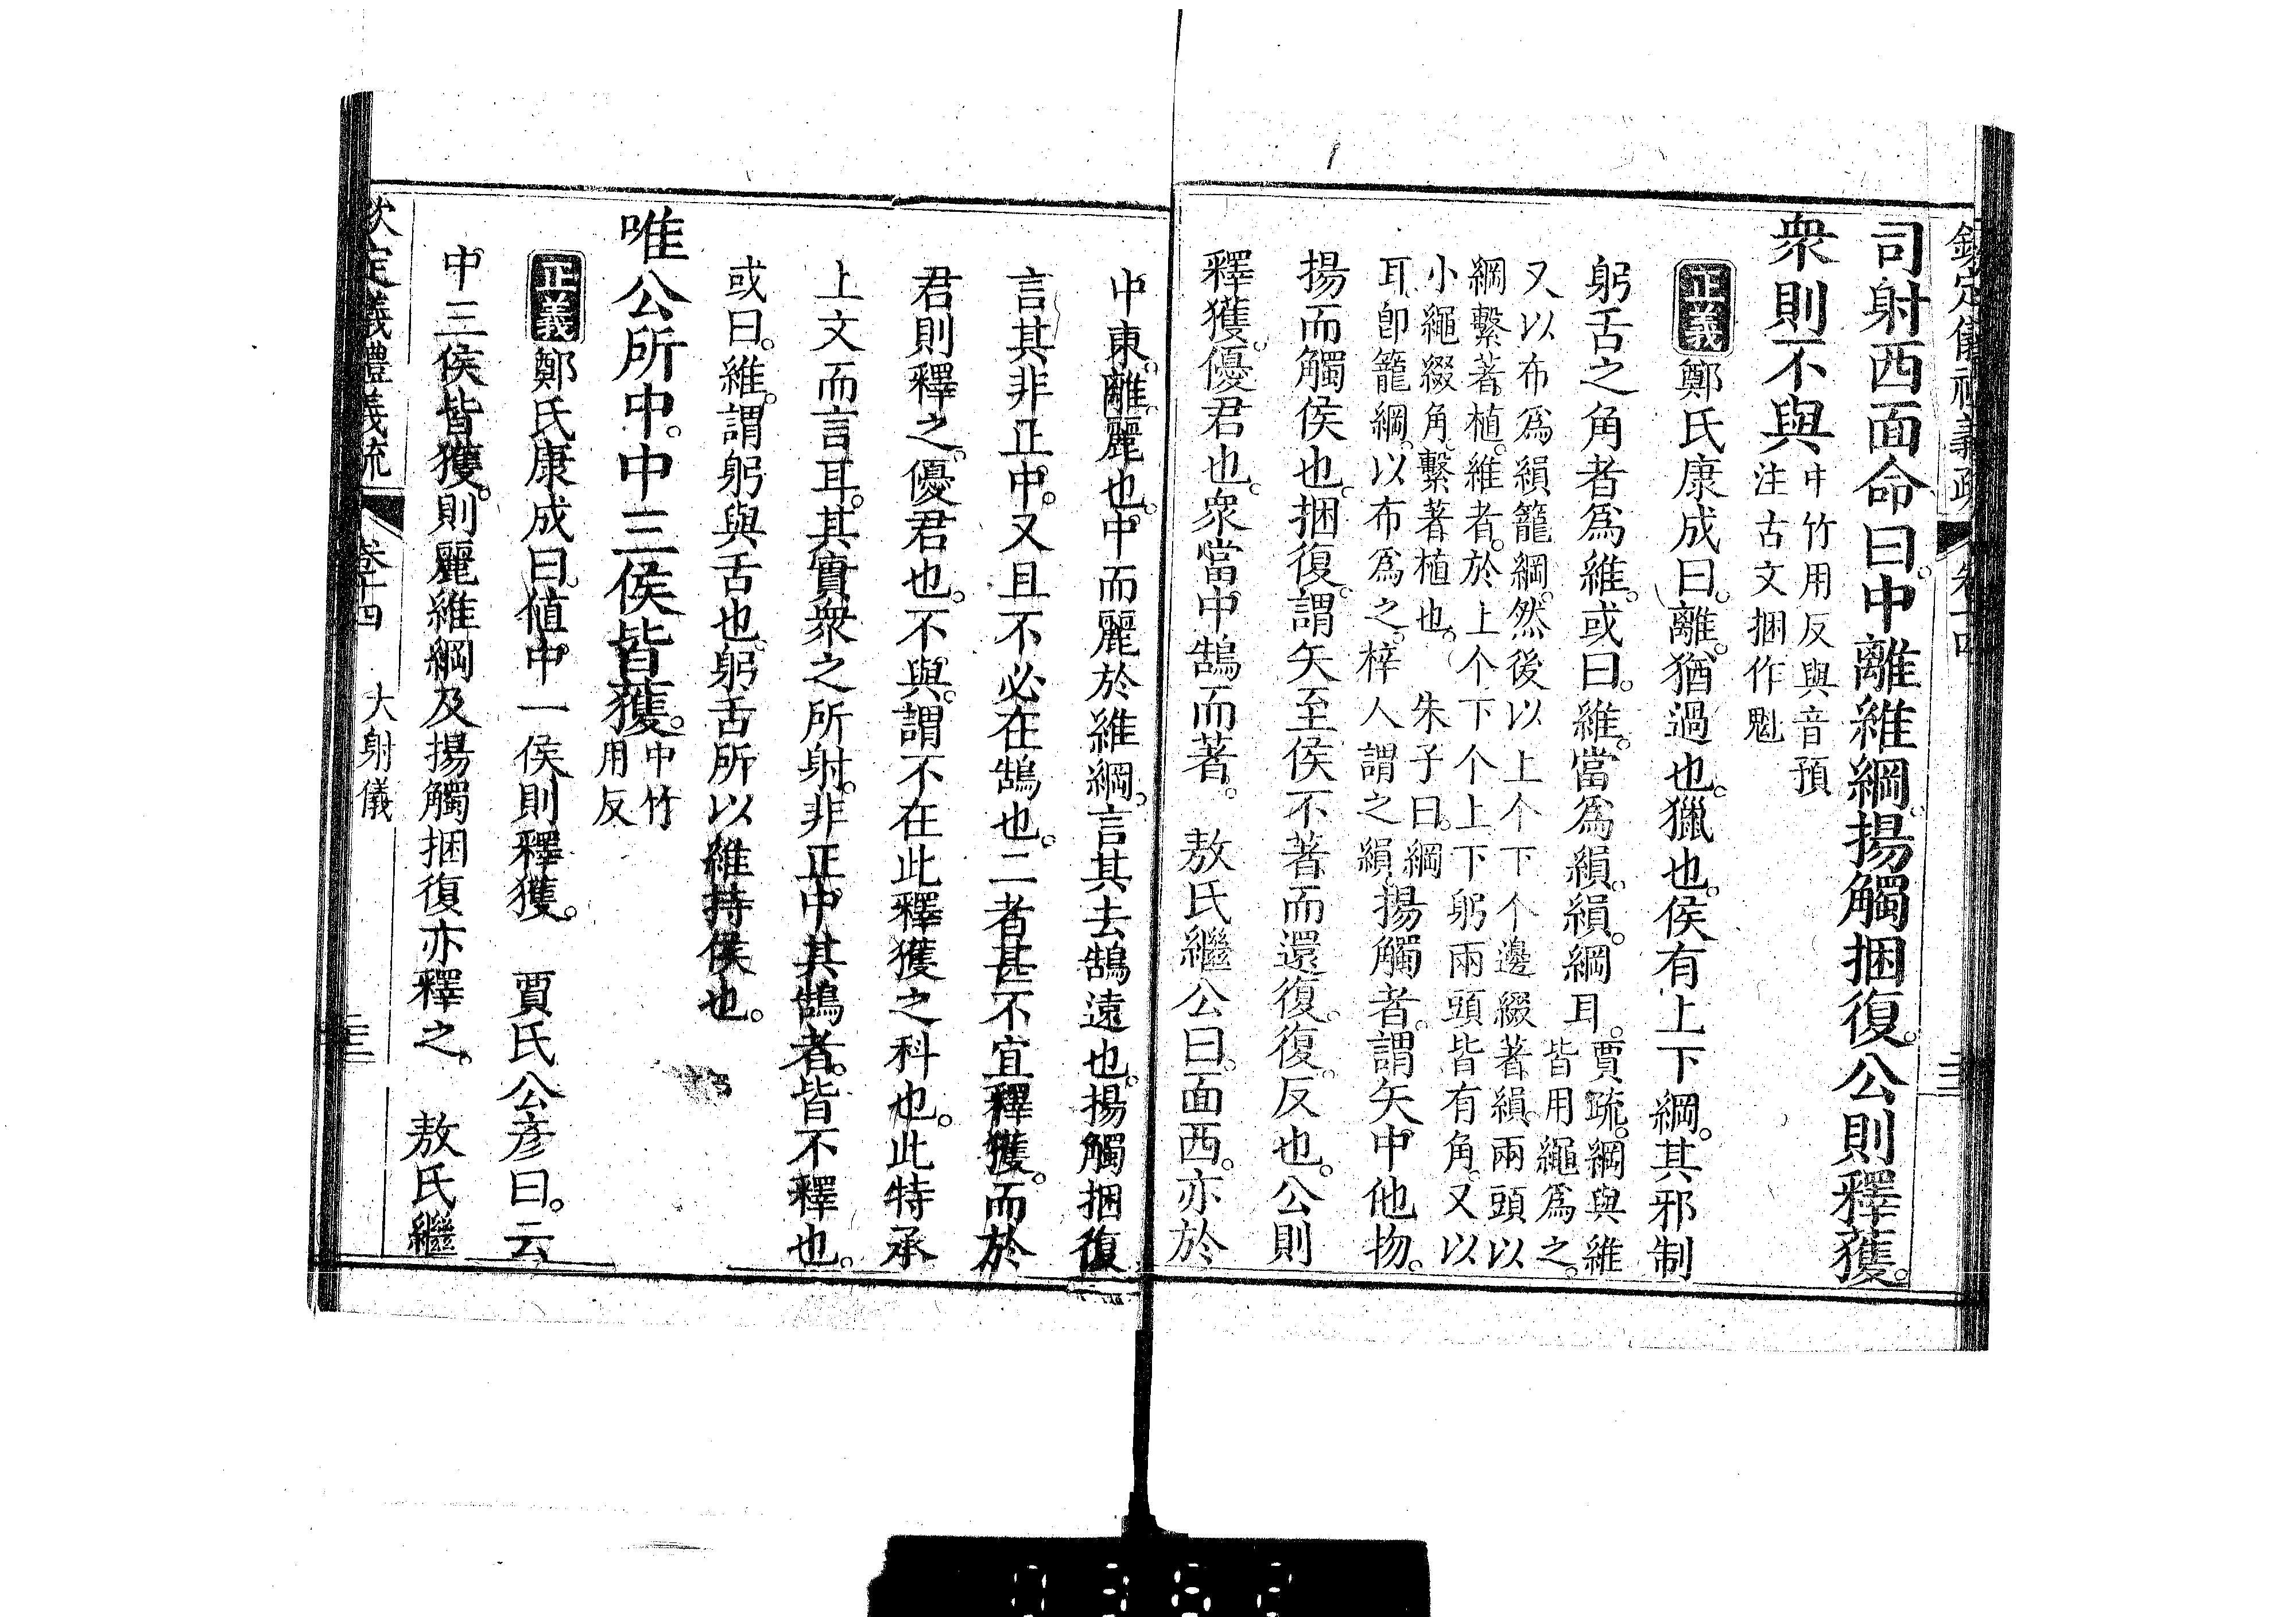 欽定儀禮義疏 卷十四
司射西面命曰。中離維綱。揚觸捆復。公則釋獲。
衆則不與
中竹用反與音預
注古文捆作魁
正義 鄭氏康成曰。離。猶過也。獵也。侯有上下綱。其邪制
躬舌之角者爲維。或曰。維。當爲縜。縜。綱耳。
賈疏。綱與維
皆用繩爲之。
又以布爲縜籠綱。然後以上个下个邊綴著縜。兩頭以
綱繫著植。維者。於上个下个上下躬兩頭皆有角。又以
小繩綴角。繫著植也。 朱子曰。綱
耳。卽籠綱。以布爲之。梓人謂之縜。
揚觸者。謂矢中他物。
揚而觸侯也。捆復。謂矢至侯不著而還復。復。反也。公則
釋獲。優君也。衆當中鵠而著。 敖氏繼公曰。面西。亦於
中東。離。麗也。中而麗於維綱。言其去鵠遠也。揚觸捆復。
言其非正中。又且不必在鵠也。二者甚不宜釋獲。而於
君則釋之。優君也。不與。謂不在此釋獲之科也。此特承
上文而言耳。其實衆之所射。非正中其鵠者。皆不釋也。
或曰。維。謂躬與舌也。躬舌所以維持侯也。
唯公所中。中三侯皆獲。
中竹
用反
正義 鄭氏康成曰。値中一侯則釋獲。 賈氏公彦曰。云
中三侯皆獲。則麗維綱及揚觸捆復亦釋之。 敖氏繼
欽定儀禮義疏 卷十四 大射儀